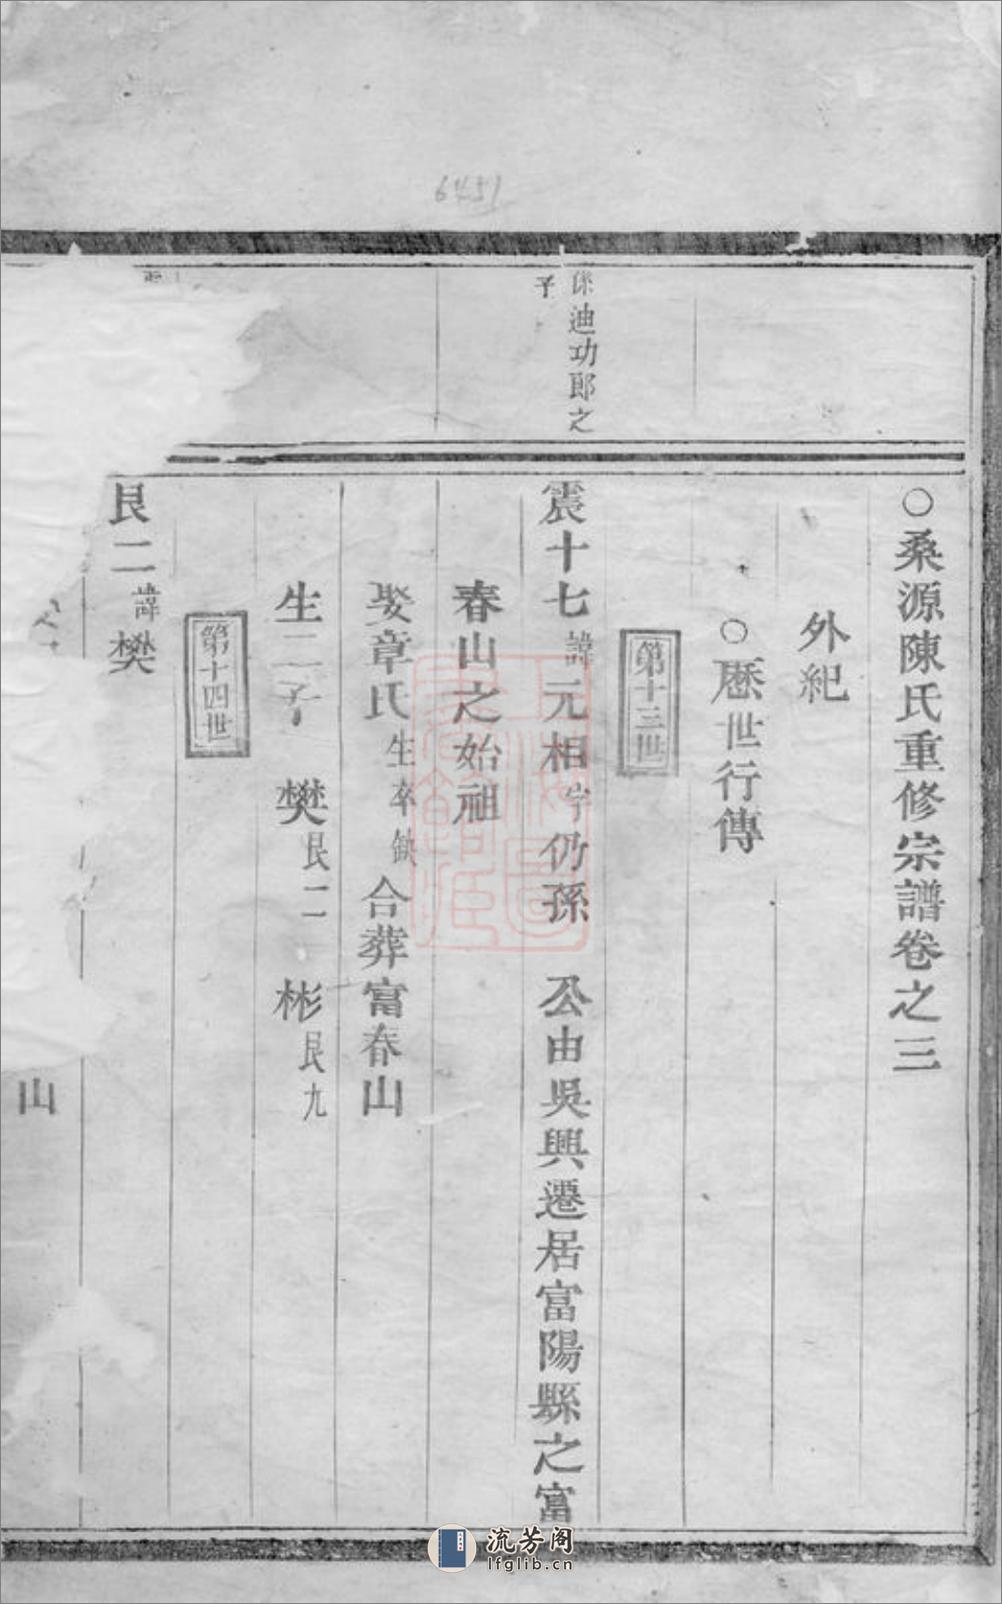 6451
○桑源陳氏重修宗譜卷之三
外紀
○厯世行傳
第十三世
係迪功郎之
子
震十七諱元相字仍孫 公由吳興遷居富陽縣之富
春山之始祖
娶章氏生卒缺合葬富春山
生二子 樊艮二 彬艮九
第十四世
艮二諱樊
山
流芳阁
lfglib.cn